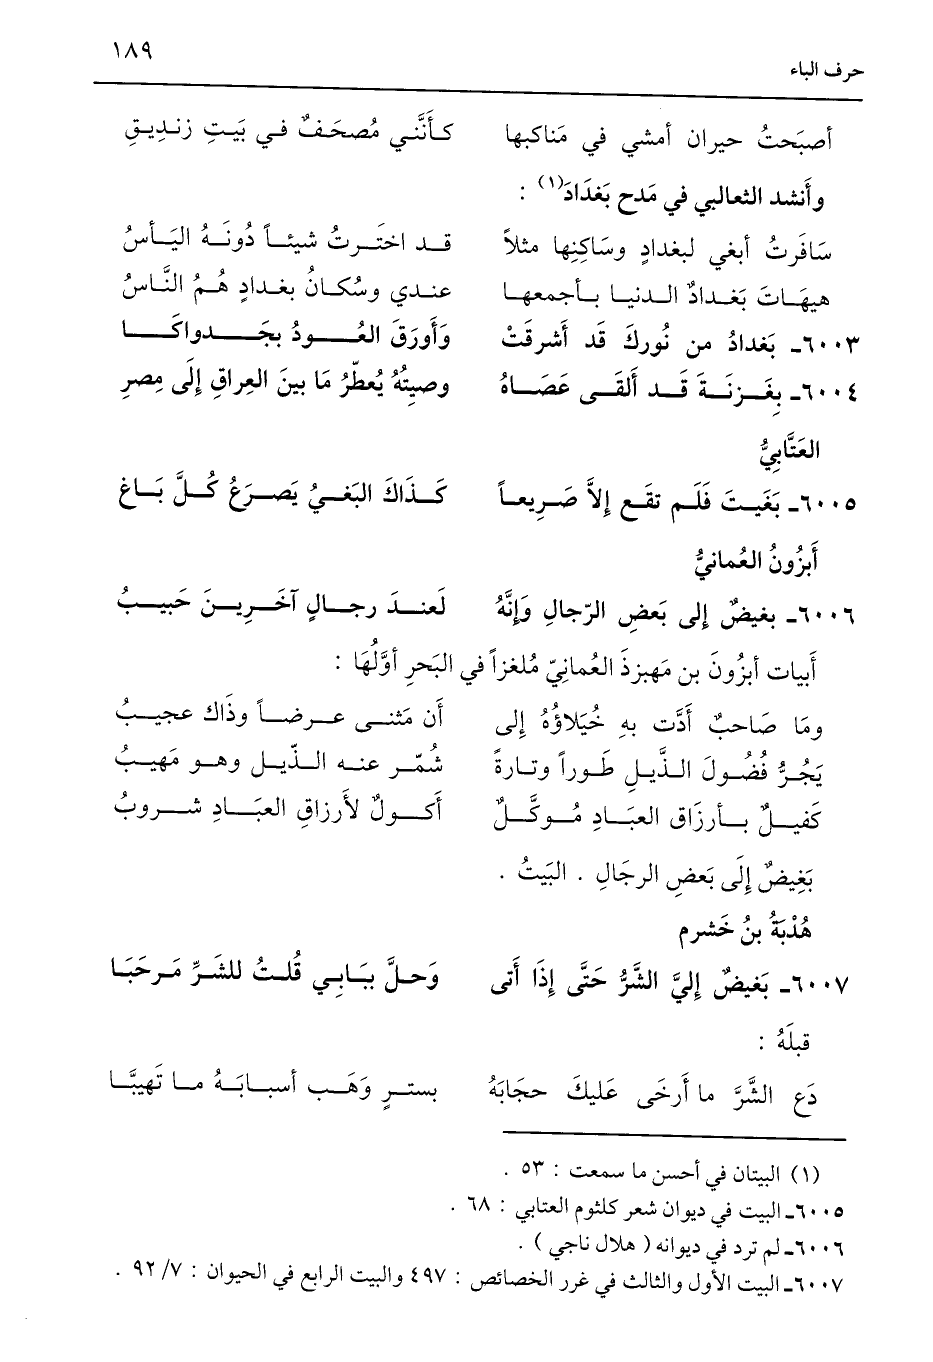 ١٨٩
حرف الباء
أصبَحتُ حيران أمشي في مَناكبها كأنَّني مُصحَفٌ في بَيتِ زنديقِ
وأَنشد الثعالبي في مَدح بَغدَادَ(١) :
سَافَرتُ أبغي لبغدادٍ وسَاكِنِها مثلاً قد اختَرتُ شيئاً دُونَهُ اليَأسُ
هيهَاتَ بَغدادُ الدنيا بأجمعها عندي وسُكانُ بغدادٍ هُمُ النَّاسُ
٦٠٠٣ـ بَغدادُ من نُورك قَد أَشرقَتْ وَأَورَقَ العُودُ بجَدواكَا
٦٠٠٤ـ بِغَزنَةَ قَد أَلقَى عَصَاهُ وصيتُهُ يُعطّرُ مَا بينَ العِراقِ إلَى مِصرِ
العَتَّابِيُّ
٦٠٠٥ـ بَغَيتَ فَلَم تقَع إلاَّ صَرِيعاً كَذَاكَ البَغيُ يَصرَعُ كُلَّ بَاغ
أَبزُونُ العُمانيُّ
٦٠٠٦ـ بغيضٌ إلى بَعضِ الرّجالِ وَإنَّهُ لَعندَ رجالٍ آخَرِينَ حَبيبُ
أَبيات أبزُونَ بن مَهبزذَ العُمانيّ مُلغزاً في البَحرِ أوَّلُهَا :
ومَا صَاحبٌ أدَّت بهِ خُيَلاؤُهُ إلى أَن مَشَى عرضاً وذَاكَ عجيبُ
يَجُرُّ فُضُولَ الذَّيلِ طَوراً وتارةً شُمّر عنه الذّيل وهو مَهيبُ
كَفيلٌ بأرزَاق العبَادِ مُوكَّلٌ أَكولٌ لأَرزَاقِ العبَادِ شروبُ
بَغِيضٌ إلَى بَعضِ الرجَالِ . البَيتُ .
هُدْبَةُ بنُ خَشرم
٦٠٠٧ـ بَغيضٌ إليَّ الشَّرُّ حَتَّى إذَا أَتى وَحلَّ ببَابي قُلتُ للشَرِّ مَرحَبَا
قبلَهُ :
دَع الشَّرَّ ما أَرخَى عَليكَ حجَابَهُ بسترٍ وَهَب أسبابَهُ ما تَهيبَّا
(١) البيتان في أحسن ما سمعت : ٥٣ .
٦٠٠٥ـ البيت في ديوان شعر كلثوم العتابي : ٦٨ .
٦٠٠٦ـ لم ترد في ديوانه ( هلال ناجي ) .
٦٠٠٧ـ البيت الأول والثالث في غرر الخصائص : ٤٩٧ والبيت الرابع في الحيوان : ٧/ ٩٢ .